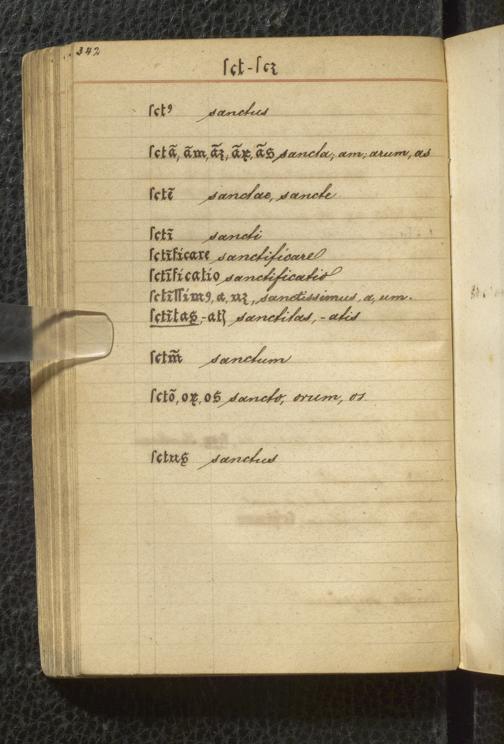 342
ſct-ſcꝫ
ſctꝰ sanctus
ſctā, ām, āꝫ, āꝝ, āꝯ sancta, am, arum, as
ſctē sanctae, sancte
ſctī sancti
ſctīficare sanctificare
ſctīficatio sanctificatio
ſctīſſimꝰ, a, uꝫ, sanctissimus, a, um.
ſctītas, -atꝭ sanctitas, -atis
ſctm̄ sanctum
ſctō, oꝝ, os sancto, orum, os
ſctus sanctus